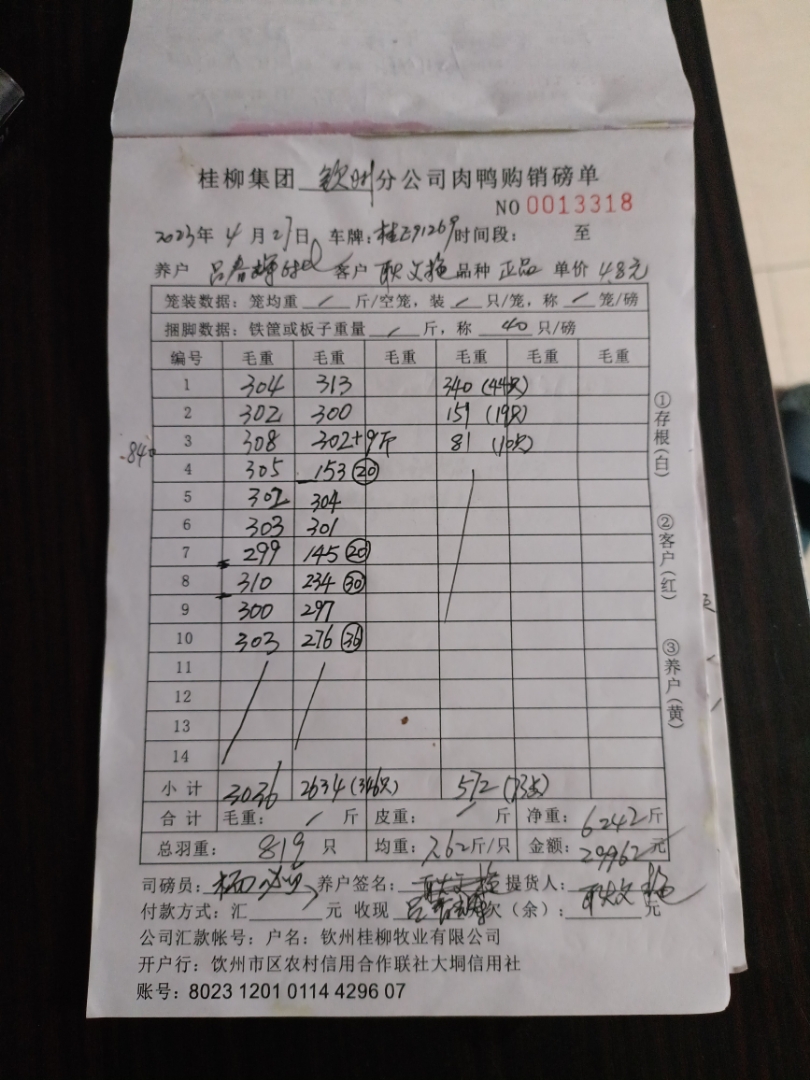 桂柳集团 钦州 分公司肉鸭购销磅单
NO 0013318
2023年 4 月 27日 车牌:桂E91269 时间段: 至
养户 吕春 客户 耿文艳 品种 正品 单价 4.8元
笼装数据:笼均重 / 斤/空笼,装 / 只/笼,称 / 笼/磅
捆脚数据:铁筐或板子重量 / 斤,称 40 只/磅
编号 毛重 毛重 毛重 毛重 毛重
1 304 313 340 (44只)
2 302 300 151 (19只)
3 308 302+9斤 81 (10只)
4 305 153 20
5 302 304
6 303 301
7 299 145 20
8 310 234 30
9 300 297
10 303 276 36
11
12
13
14
小计 3036 2634 (346只) 572 (73只)
合计 毛重: / 斤 皮重: / 斤 净重: 6242 斤
总羽重: 819 只 均重: 7.62 斤/只 金额: 29962 元
司磅员: 养户签名: 提货人: 耿文艳
付款方式:汇 元 收现 欠(余): 元
公司汇款帐号:户名:钦州桂柳牧业有限公司
开户行:饮州市区农村信用合作联社大垌信用社
账号:8023 1201 0114 4296 07
①存根(白)
②客户(红)
③养户(黄)